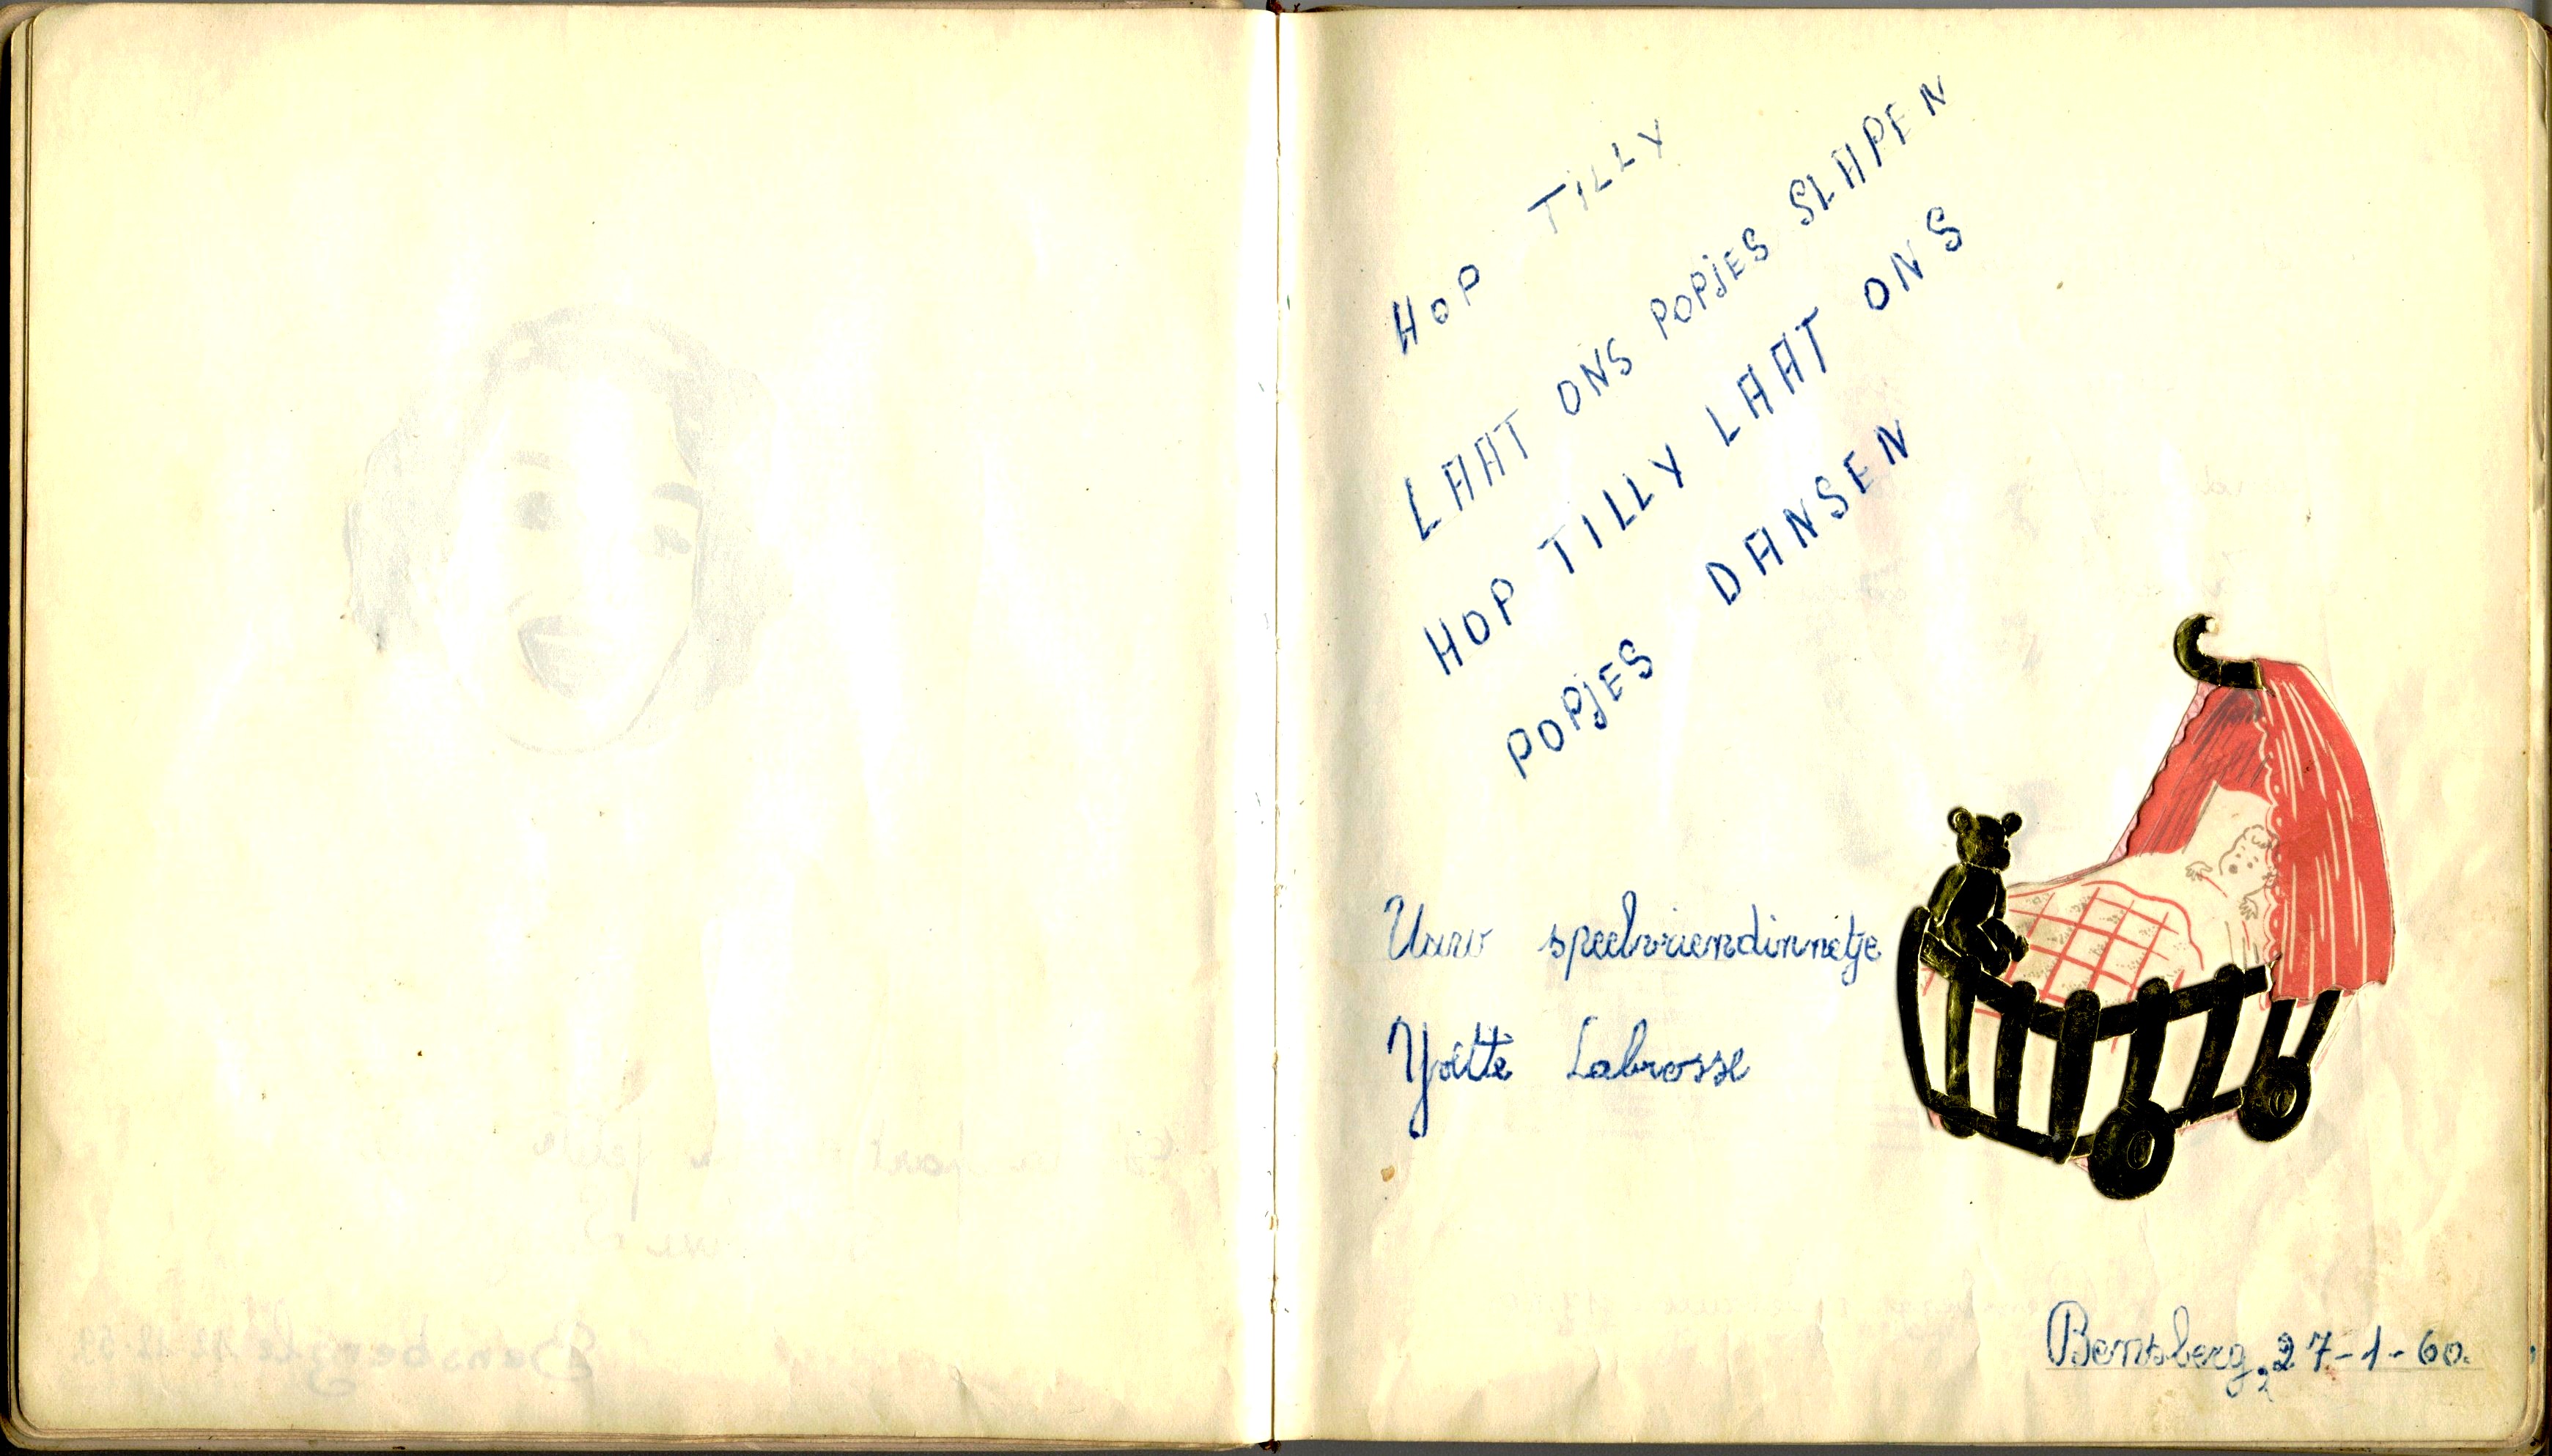 HOP TILLY
LAAT ONS POPJES SLAPEN
HOP TILLY LAAT ONS
POPJES DANSEN
Uuw speelvriendinnetje
Yvette Labrosse
Bensberg, 27-1-60.
Bensberg le 12.12.59.